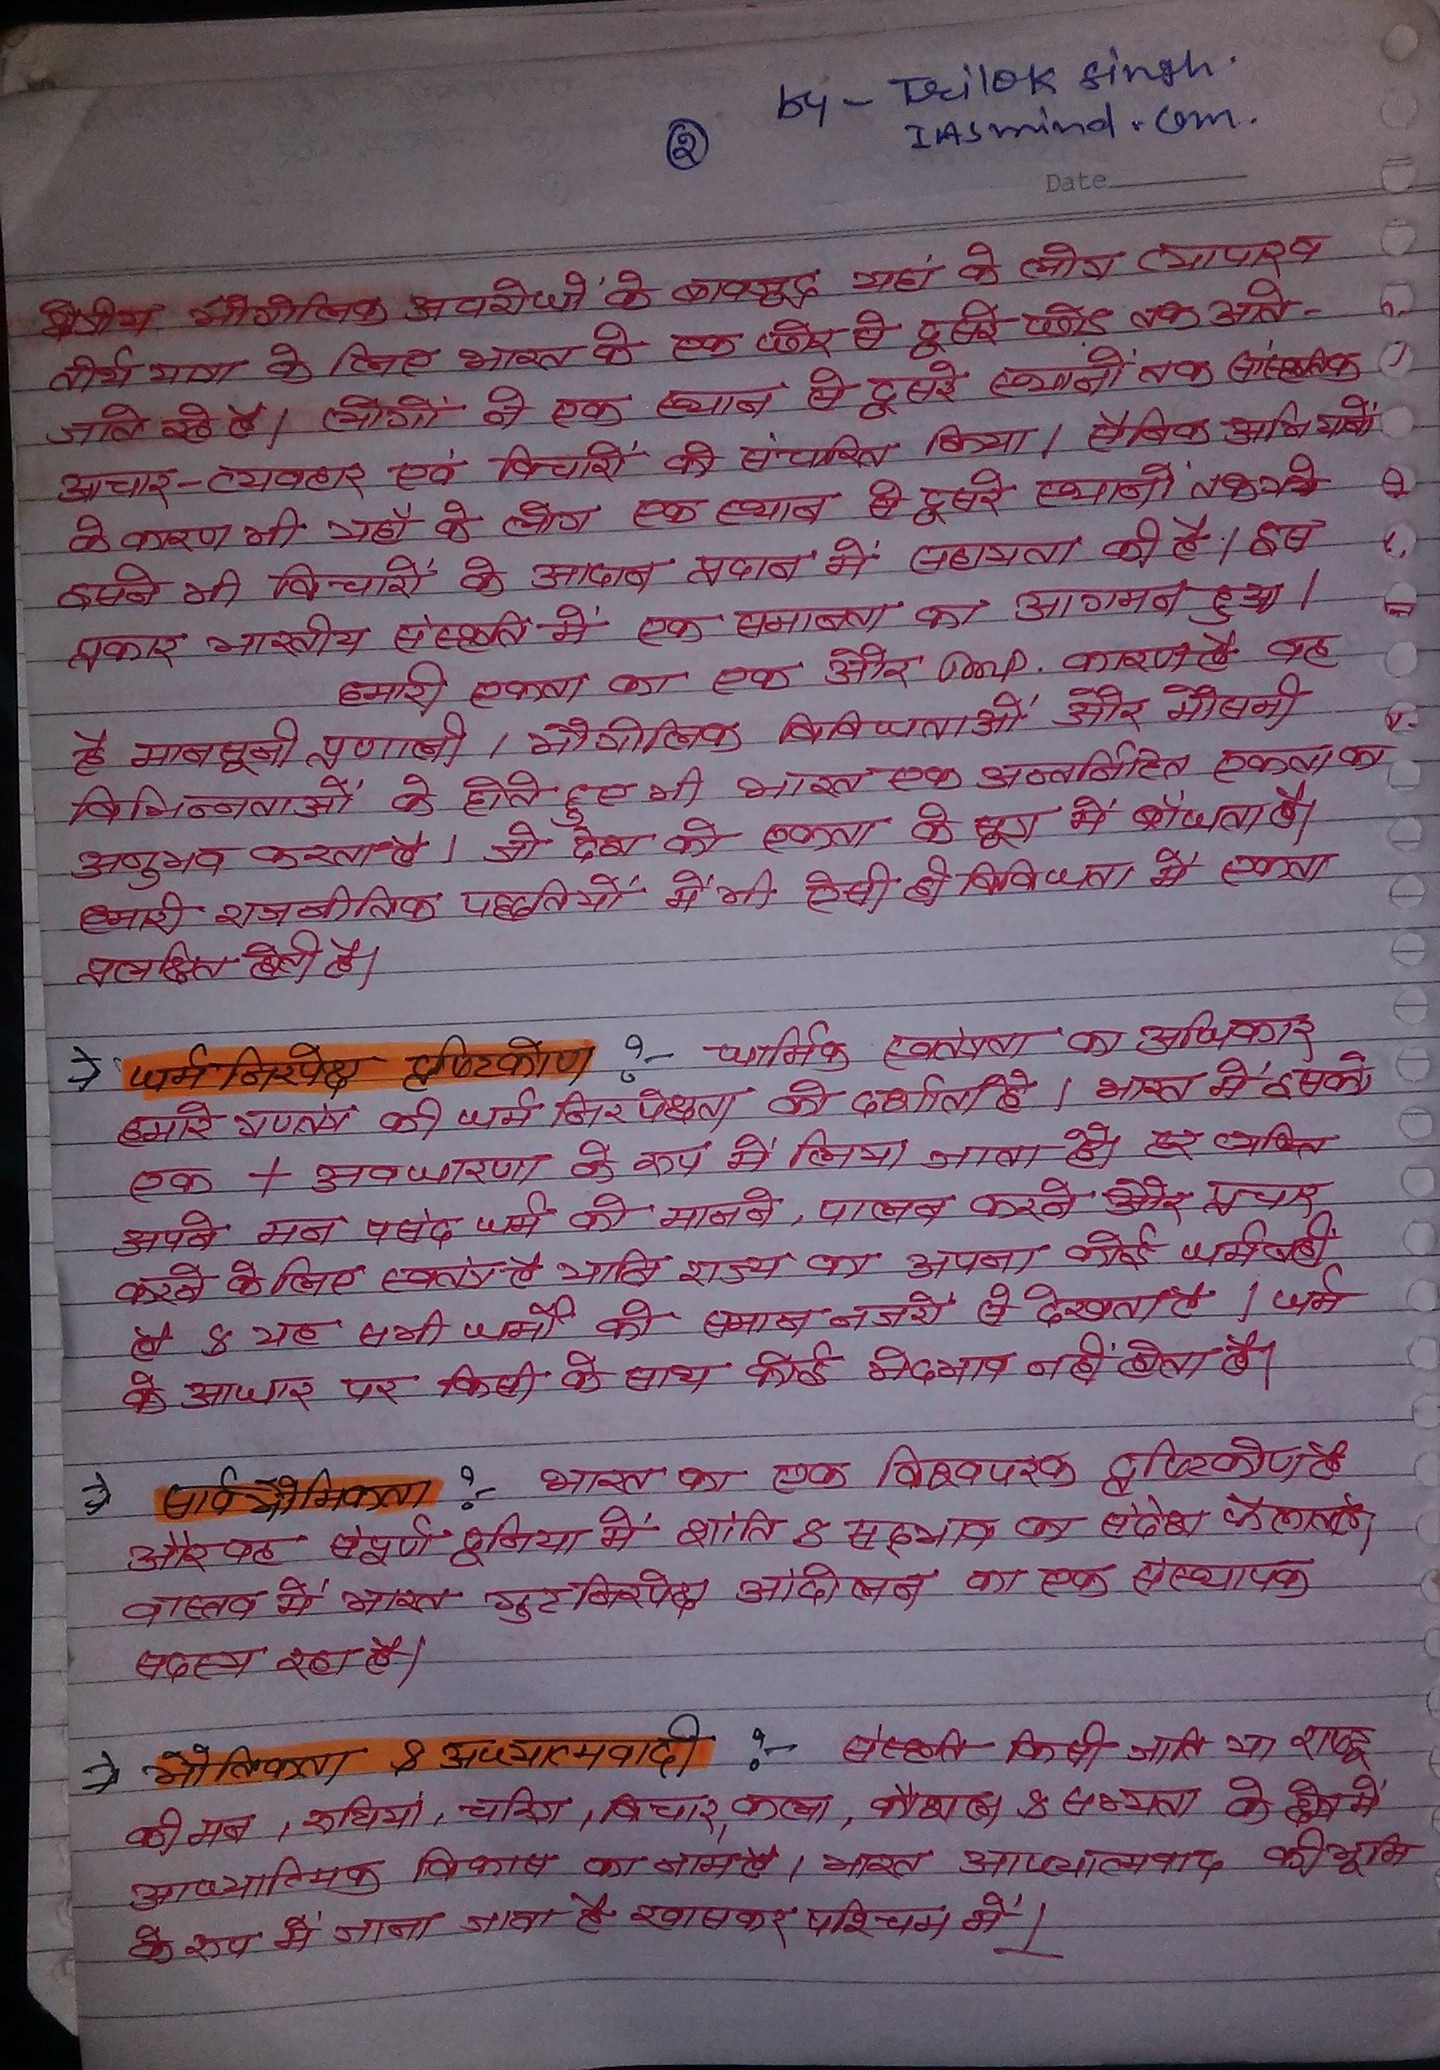 by - Trilok Singh.
②
IASmind.com.
Date
भौगोलिक अवरोधों के बावजूद यहां के लोग व्यापार व
तीर्थ यात्रा के लिए भारत के एक छोर से दूसरे छोर तक आते-
जाते रहे है। लोगों ने एक स्थान से दूसरे स्थानों तक सांस्कृतिक
आचार-व्यवहार एवं विचारों को संचारित किया। सैनिक अभियानों
के कारण भी यहाँ के लोग एक स्थान से दूसरे स्थानों तक गये
इसने भी विचारों के आदान प्रदान में सहायता की है। इस
प्रकार भारतीय संस्कृति में एक समानता का आगमन हुआ।
हमारी एकता का एक और Imp. कारण है वह
है मानसूनी प्रणाली। भौगोलिक विविधताओं और मौसमी
विभिन्नताओं के होते हुए भी भारत एक अन्तर्निहित एकता का
अनुभव करता है। जो देश को एकता के सूत्र में बाँधता है।
हमारी राजनीतिक पद्धतियों में भी ऐसी ही विविधता में एकता
प्रलक्षित होती है।
→ धर्मनिरपेक्ष दृष्टिकोण :- धार्मिक स्वतंत्रता का अधिकार
हमारे गणतंत्र की धर्म निरपेक्षता को दर्शाता है। भारत में इसको
एक + अवधारणा के रूप में लिया जाता है। हर व्यक्ति
अपने मन पसंद धर्म को मानने, पालन करने और प्रचार
करने के लिए स्वतंत्र है राज्य का अपना कोई धर्म नहीं
है & यह सभी धर्मों को समान नजरों से देखता है। धर्म
के आधार पर किसी के साथ कोई भेदभाव नहीं होता है।
→ सार्वभौमिकता :- भारत का एक विश्वपरक दृष्टिकोण है
और वह संपूर्ण दूनिया में शांति & सद्भाव का संदेश फैलाता है,
वास्तव में भारत गुटनिरपेक्ष आंदोलन का एक संस्थापक
सदस्य रहा है।
→ भौतिकता & अध्यात्मवादी :- संस्कृति किसी जाति या राष्ट्र
की मन, रुचियां, चरित्र, विचार, कला, कौशल & सभ्यता के क्षेत्र में
आध्यात्मिक विकास का नाम है। भारत आध्यात्मवाद की भूमि
के रुप में जाना जाता है खासकर पश्चिम में।